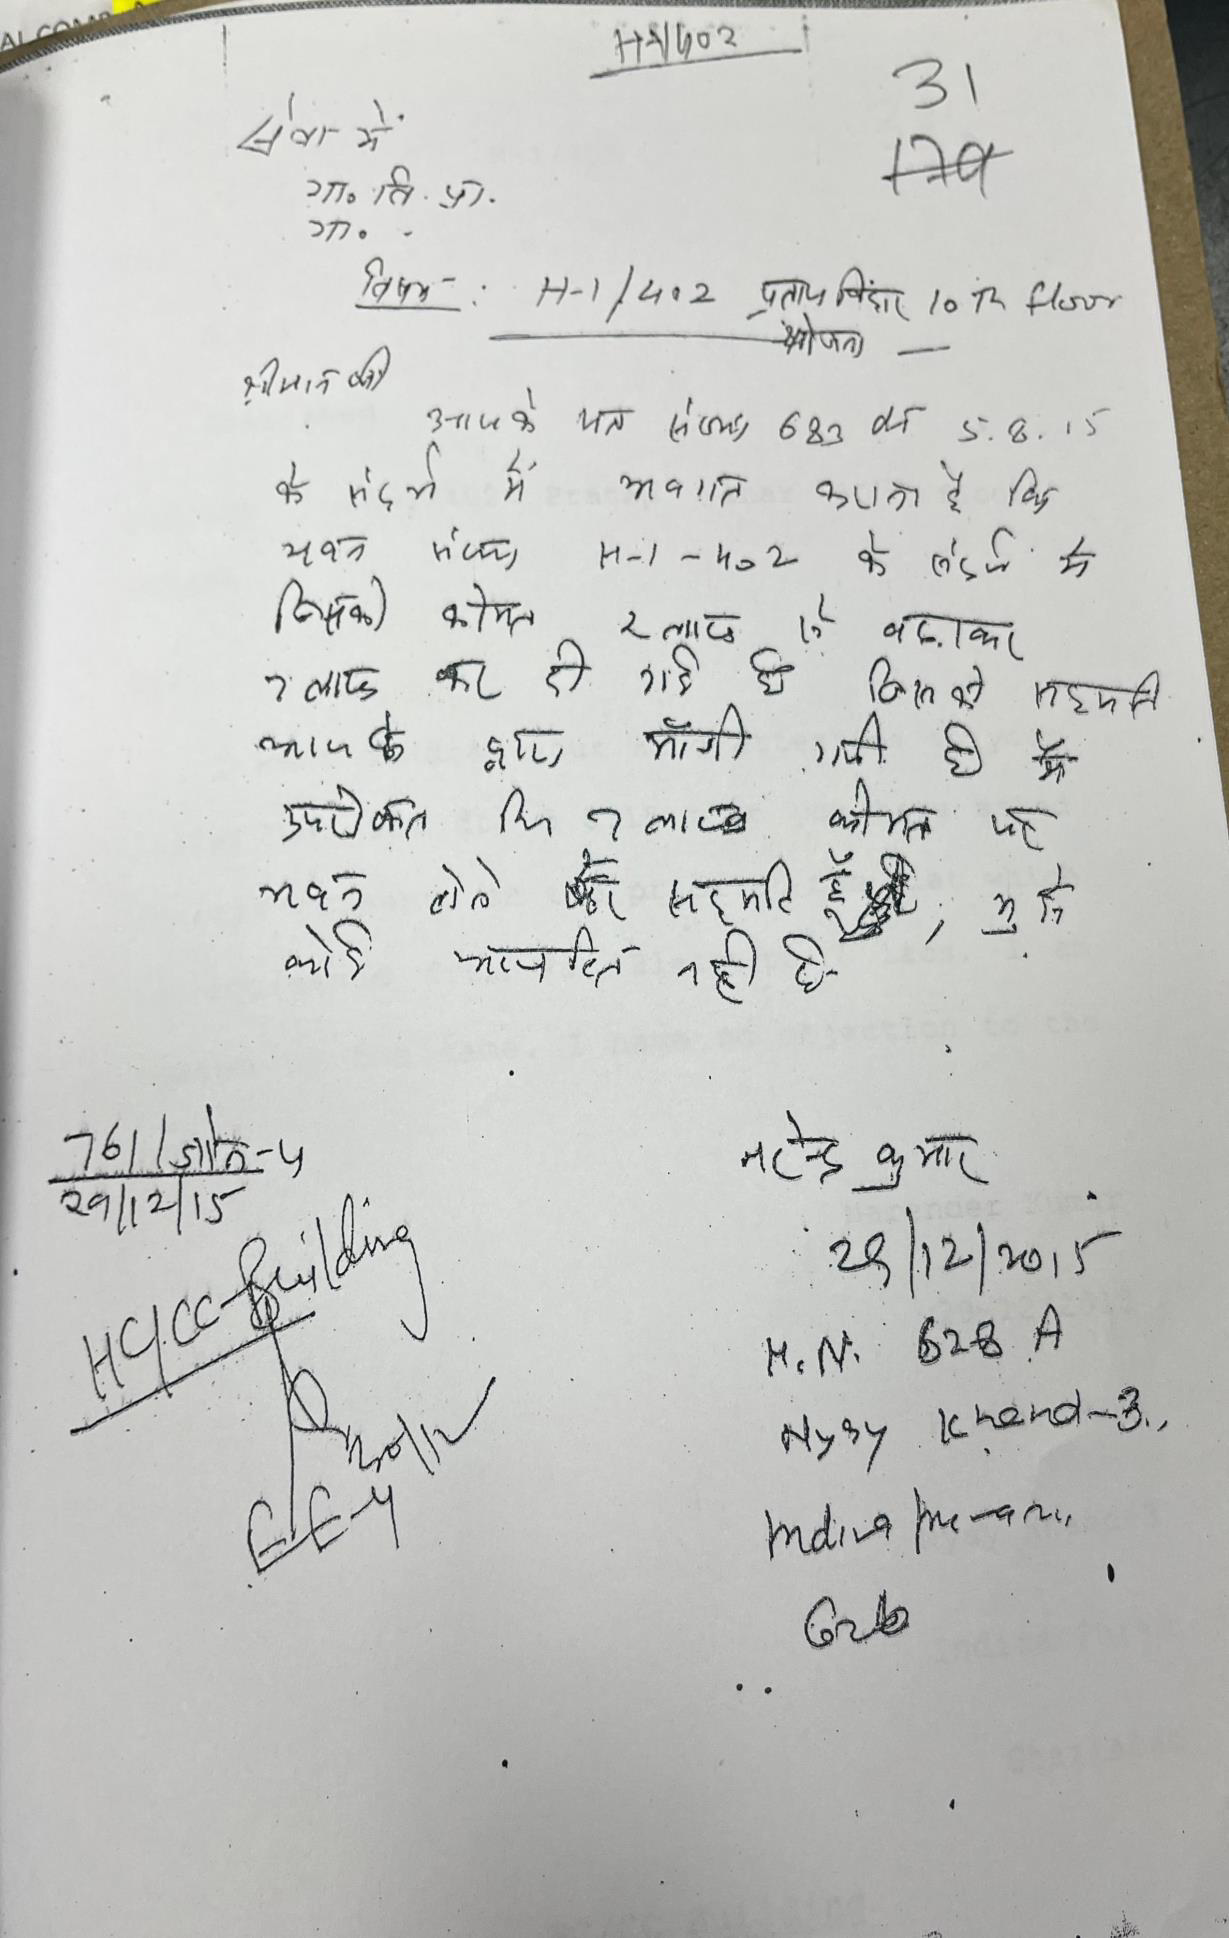 H-1/402
31
179
सेवा में
गा. वि. प्रा.
गा.
विषय : H-1/402 प्रताप विहार 10th floor
योजना
श्रीमान जी
आपके पत्र संख्या 683 दि 5.8.15
के संदर्भ में अवगत कराना है कि
भवन संख्या H-1-402 के संदर्भ में
जिसकी कीमत 2 लाख से बढ़ाकर
7 लाख कर दी गई है जिसकी सहमति
आपके द्वारा माँगी गयी है मैं
उपरोक्त कि 7 लाख कीमत पर
भवन लेने को सहमति हूँ, मुझे
कोई आपत्ति नहीं है
761/जोन-4
29/12/15
नरेन्द्र कुमार
29/12/2015
HC/CC-Building
H.N. 628 A
Nyay Khand-3,
30/12
E-E-4
Indirapuram,
Gzb